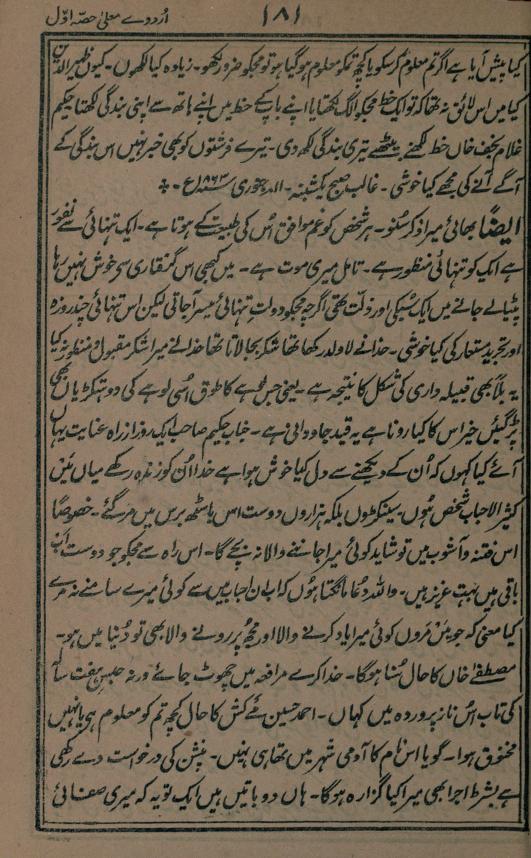 اُردوے معلیٰ حصہ اوّل
۱۸۱
کیا پیش آیا ہے اگر تم معلوم کر سکو یا کچھ تمکو معلوم ہو گیا ہو تو مجکو ضرور لکھو۔ زیادہ کیا لکھوں۔ کیوں ظہیر الدین
کیا میں اس لائق نہ تھا کہ تو ایک خط مجکو الگ لکھتا یا اپنے باپ کے خط میں اپنے ہاتھ سے اپنی بندگی لکھتا حکیم
غلام نجف خاں خط لکھنے بیٹھے تیری بندگی لکھ دی۔ تیرے فرشتوں کو بھی خبر نہیں اس بندگی کے
آگے آنے کی مجھے کیا خوشی۔ غالب صبح یکشنبہ۔ جنوری ۱۸۶۳ء۔
ایضاً بھائی میرا ذکر سنو۔ ہر شخص کو غم موافق اُس کی طبیعت کے ہوتا ہے۔ ایک تنہائی سے نفور
ہے ایک کو تنہائی منظور ہے۔ تاہل میری موت ہے۔ میں کبھی اس گرفتاری سے خوش نہیں رہا
پٹیالے جانے میں ایک سُبکی اور ذلت تھی اگرچہ مجکو دولتِ تنہائی میسر آجاتی لیکن اس تنہائی چند روزہ
اور تجرید مستعار کی کیا خوشی۔ خدا نے لاولد رکھا تھا شکر بجا لاتا تھا خدا نے میرا شکر مقبول و منظور نہ کیا
یہ بلا بھی قبیلہ داری کی شکل کا نتیجہ ہے۔ یعنی جس لوہے کا طوق اُسی لوہے کی دو ہتکڑیاں بھی
پڑ گئیں خیر اس کا کیا رونا ہے یہ قید جاودانی ہے۔ جناب حکیم صاحب ایک روز از راہ عنایت یہاں
آئے کیا کہوں کہ اُن کے دیکھنے سے دل کیا خوش ہوا ہے خدا اُن کو زندہ رکھے میاں میں
کثیر الاحباب شخص ہوں۔ سیکڑوں بلکہ ہزاروں دوست اس باسٹھ برس میں مر گئے۔ خصوصاً
اس فتنہ و آشوب میں تو شاید کوئی میرا جاننے والا نہ بچے گا۔ اس راہ سے مجکو جو دوست اب
باقی ہیں بہت عزیز ہیں۔ واللہ دعا مانگتا ہوں کہ اب ان احبا میں سے کوئی میرے سامنے نہ مرے
کیا معنی کہ جو میں مروں کوئی میرا یاد کرنے والا اور مجھ پر رونے والا بھی تو دُنیا میں ہو۔
مصطفےٰ خاں کا حال سُنا ہوگا۔ خدا کرے مرافعہ میں چھوٹ جائے ورنہ حبس ہفت سالہ
کی تاب اُس ناز پروردہ میں کہاں۔ احمد حسین میکش کا حال کچھ تم کو معلوم ہے یا نہیں
مخنوق ہوا۔ گویا اس نام کا آدمی شہر میں تھا ہی نہیں۔ پنشن کی درخواست دے رکھی
ہے بشرط اجرا بھی میرا کیا گزارہ ہوگا۔ ہاں دو باتیں ہیں ایک تو یہ کہ میری صفائی